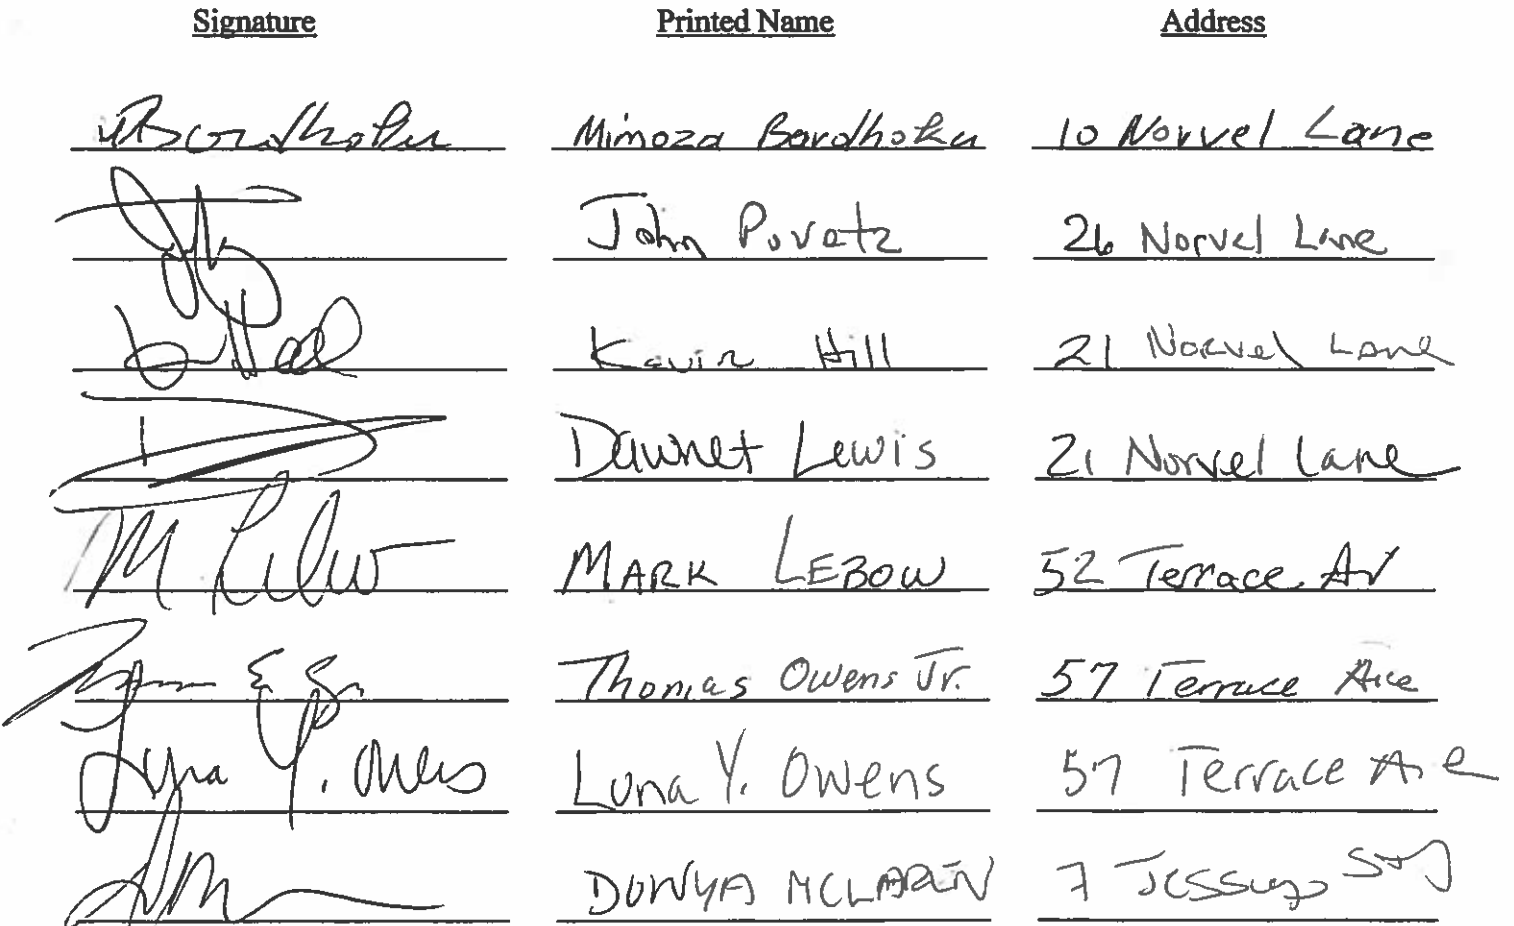 Signature Printed Name Address
Mimoza Bardhoku 10 Norvel Lane
John Povatz 26 Norvel Lane
Kevin Hill 21 Norvel Lane
Dawnet Lewis 21 Norvel Lane
M MARK LEBOW 52 Terrace Av
Thomas Owens Jr. 57 Terrace Ave
Y. Owens Luna Y. Owens 57 Terrace Ave
DONYA MCLAREN 7 Jessup